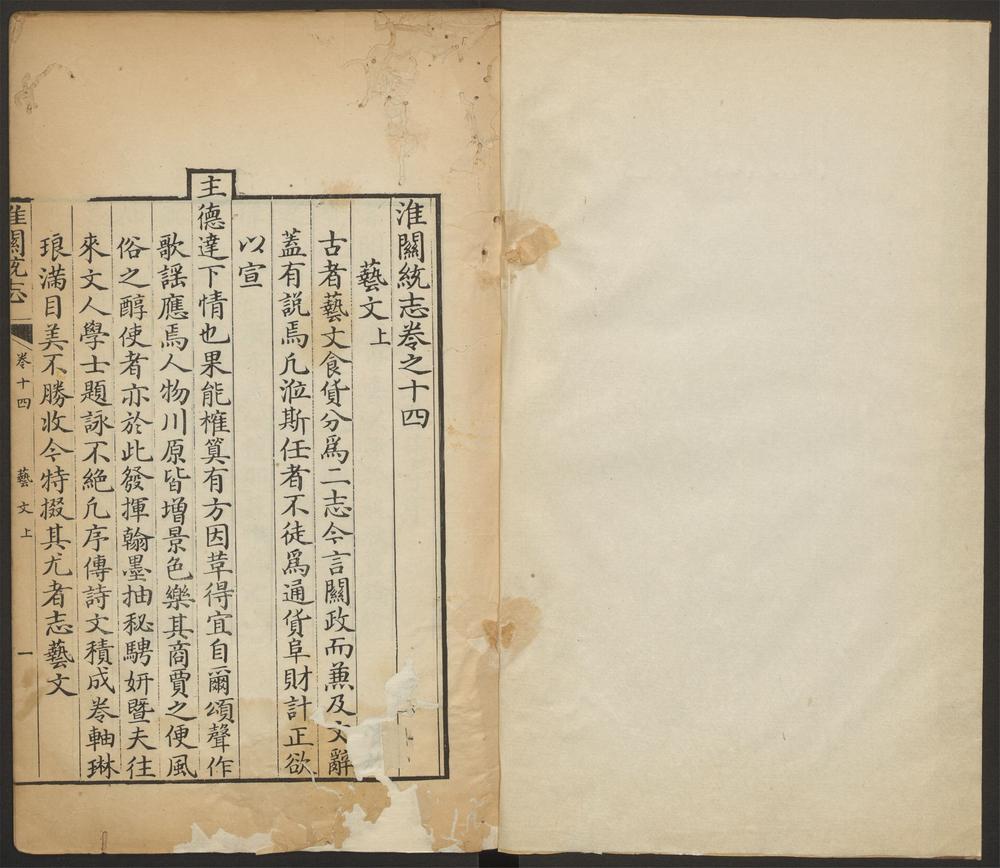 淮關統志卷之十四
藝文上
古者藝文食貨分爲二志今言關政而兼及文辭
蓋有説焉凡涖斯任者不徒爲通貨阜財計正欲
以宣
主德達下情也果能榷筭有方因革得宜自爾頌聲作
歌謡應焉人物川原皆增景色樂其商賈之便風
俗之醇使者亦於此發揮翰墨抽秘騁妍暨夫往
來文人學士題詠不絶凡序傳詩文積成卷軸琳
琅滿目美不勝收今特掇其尤者志藝文
淮關統志
卷十四
藝文上
一